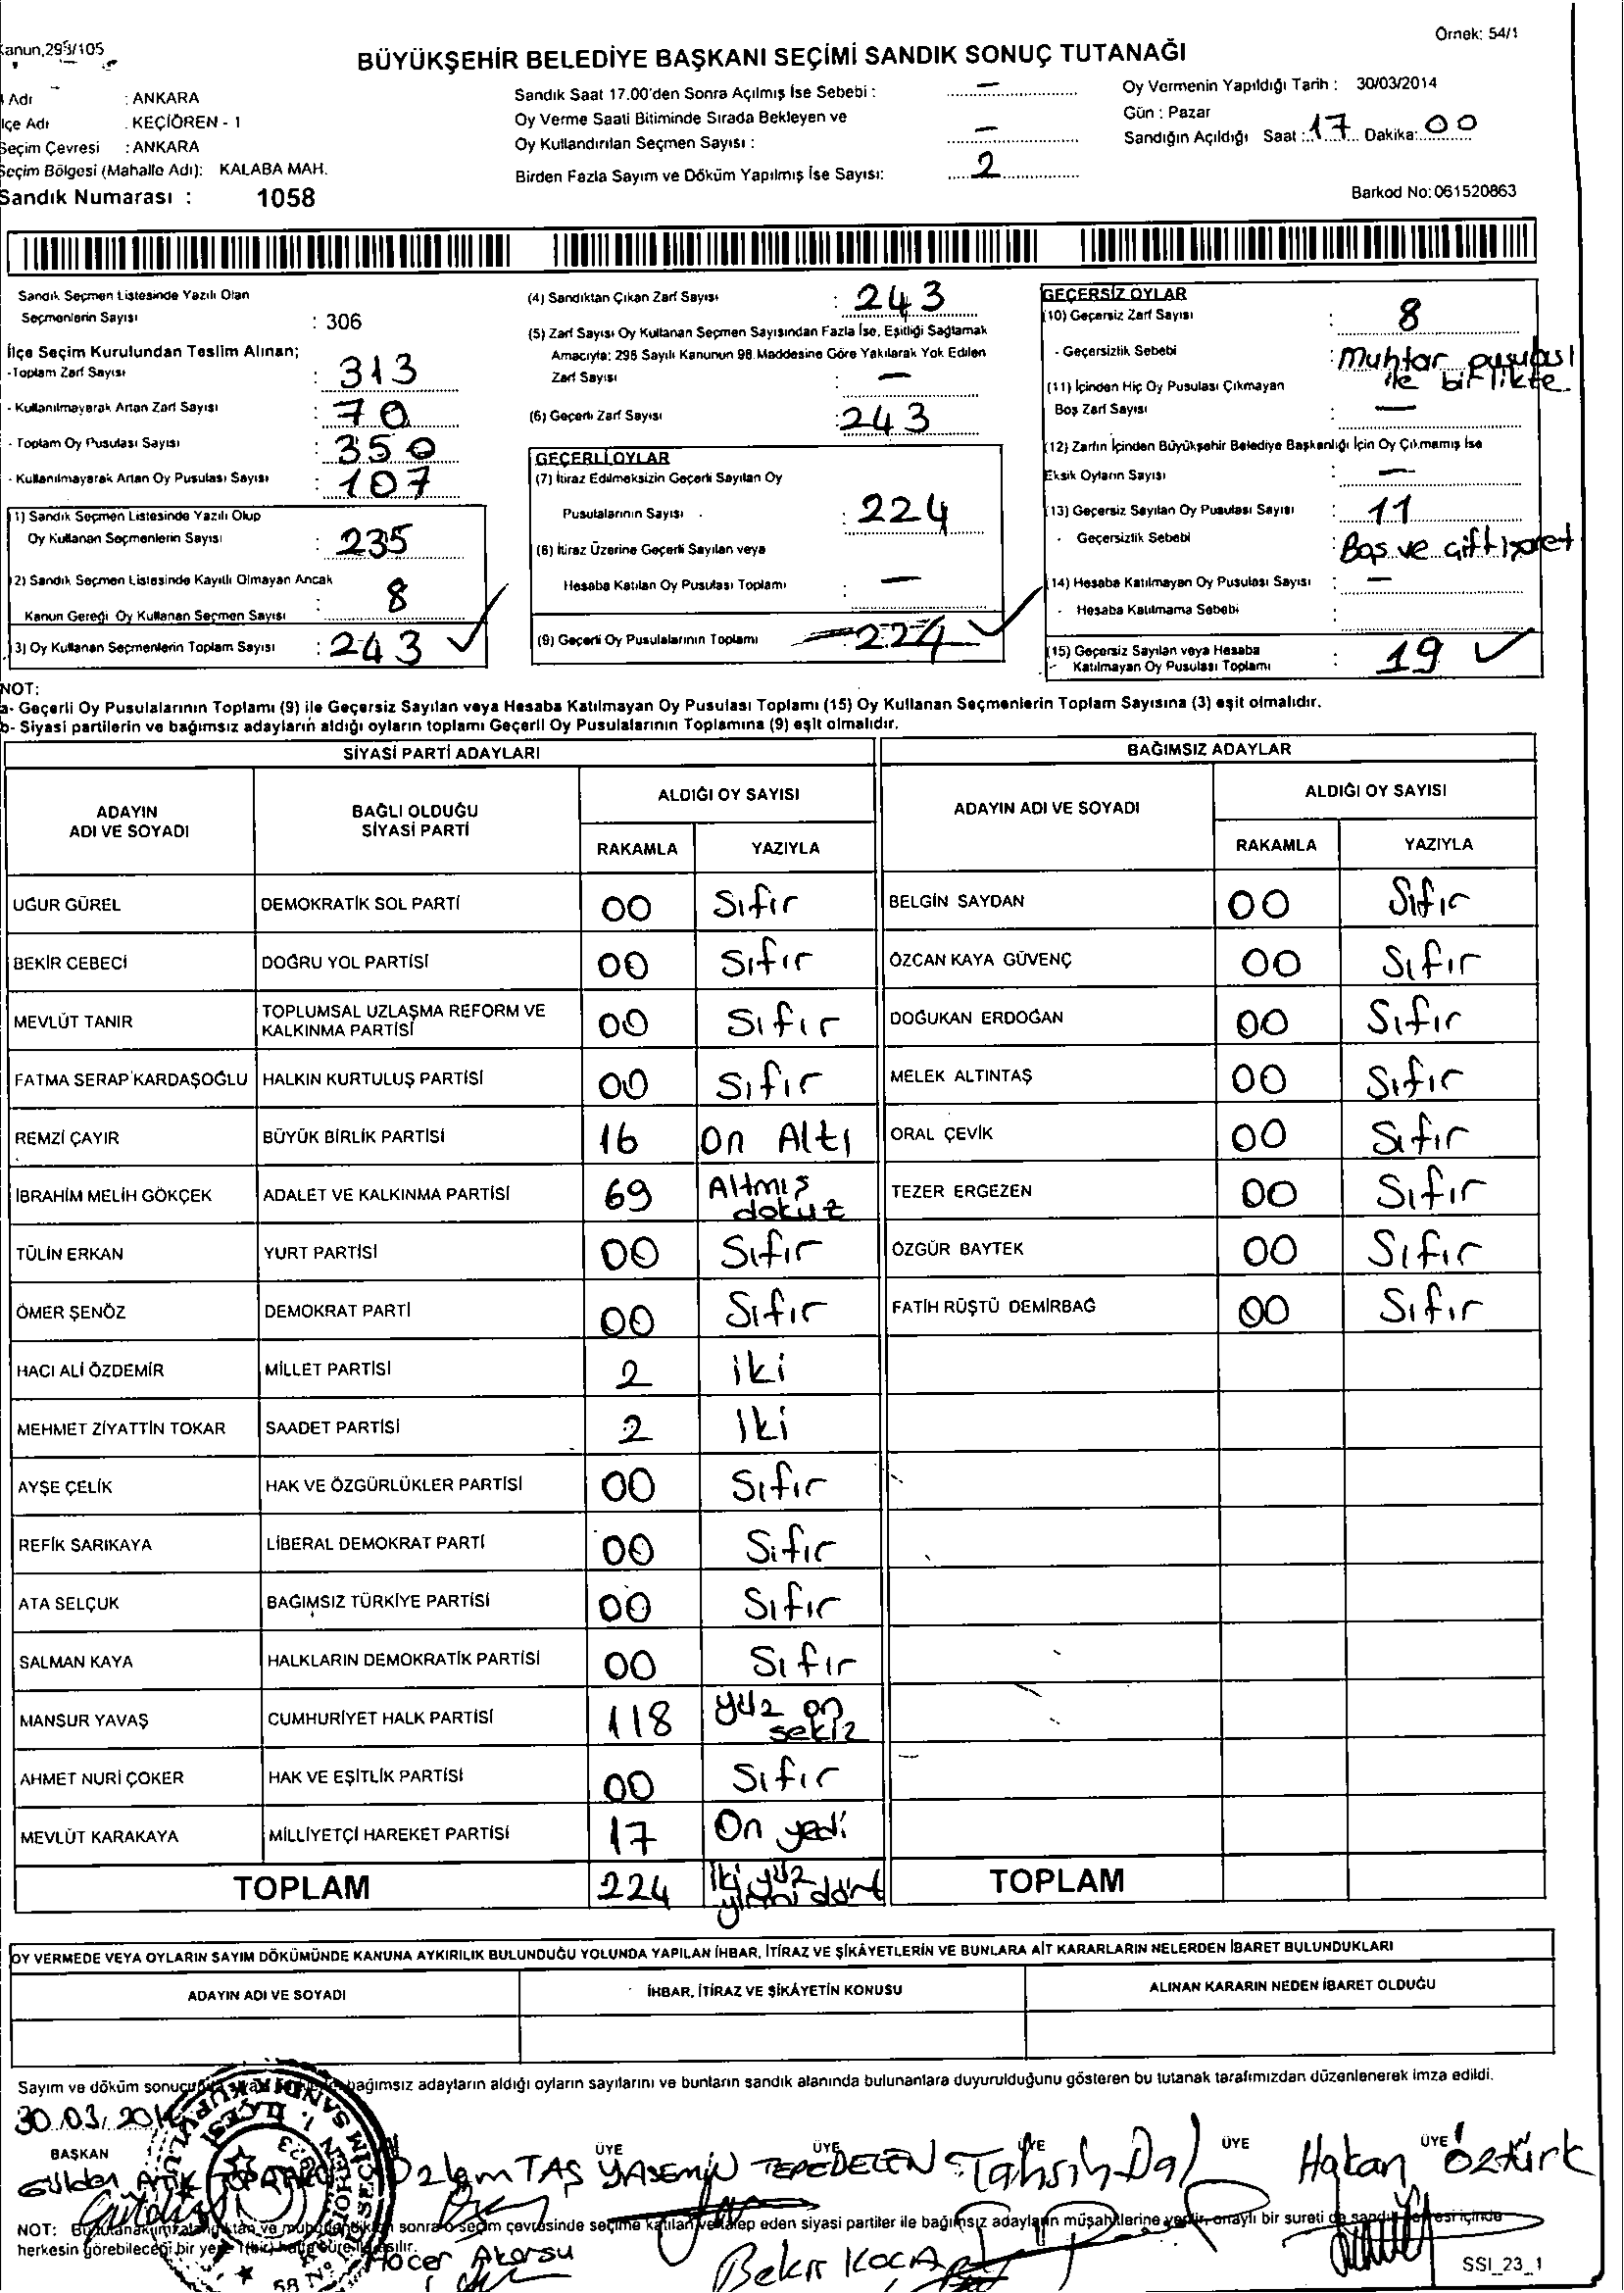 Kanun,298/105
Örnek: 54/1
BÜYÜKŞEHİR BELEDİYE BAŞKANI SEÇİMİ SANDIK SONUÇ TUTANAĞI
Adı : ANKARA
İlçe Adı : KEÇİÖREN - 1
Seçim Çevresi : ANKARA
Seçim Bölgesi (Mahalle Adı): KALABA MAH.
Sandık Numarası : 1058
Sandık Saat 17.00'den Sonra Açılmış İse Sebebi : —
Oy Verme Saati Bitiminde Sırada Bekleyen ve
Oy Kullandırılan Seçmen Sayısı : —
Birden Fazla Sayım ve Döküm Yapılmış İse Sayısı: 2
Oy Vermenin Yapıldığı Tarih : 30/03/2014
Gün : Pazar
Sandığın Açıldığı Saat : 17 Dakika: 00
Barkod No: 061520863
Sandık Seçmen Listesinde Yazılı Olan
Seçmenlerin Sayısı : 306
İlçe Seçim Kurulundan Teslim Alınan;
-Toplam Zarf Sayısı : 313
- Kullanılmayarak Artan Zarf Sayısı : 70
- Toplam Oy Pusulası Sayısı : 350
- Kullanılmayarak Artan Oy Pusulası Sayısı : 107
(1) Sandık Seçmen Listesinde Yazılı Olup
Oy Kullanan Seçmenlerin Sayısı : 235
(2) Sandık Seçmen Listesinde Kayıtlı Olmayan Ancak
Kanun Gereği Oy Kullanan Seçmen Sayısı : 8
(3) Oy Kullanan Seçmenlerin Toplam Sayısı : 243 ✓
(4) Sandıktan Çıkan Zarf Sayısı : 243
(5) Zarf Sayısı Oy Kullanan Seçmen Sayısından Fazla İse, Eşitliği Sağlamak
Amacıyla; 298 Sayılı Kanunun 98. Maddesine Göre Yakılarak Yok Edilen
Zarf Sayısı : —
(6) Geçerli Zarf Sayısı : 243
GEÇERLİ OYLAR
(7) İtiraz Edilmeksizin Geçerli Sayılan Oy
Pusulalarının Sayısı : 224
(8) İtiraz Üzerine Geçerli Sayılan veya
Hesaba Katılan Oy Pusulası Toplamı : —
(9) Geçerli Oy Pusulalarının Toplamı : 224 ✓
GEÇERSİZ OYLAR
(10) Geçersiz Zarf Sayısı : 8
- Geçersizlik Sebebi : Muhtar pusulası
ile birlikte
(11) İçinden Hiç Oy Pusulası Çıkmayan
Boş Zarf Sayısı : —
(12) Zarfın İçinden Büyükşehir Belediye Başkanlığı İçin Oy Çıkmamış İse
Eksik Oyların Sayısı : —
(13) Geçersiz Sayılan Oy Pusulası Sayısı : 11
- Geçersizlik Sebebi : Boş ve çift işaret
(14) Hesaba Katılmayan Oy Pusulası Sayısı : —
- Hesaba Katılmama Sebebi :
(15) Geçersiz Sayılan veya Hesaba
Katılmayan Oy Pusulası Toplamı : 19 ✓
NOT:
a- Geçerli Oy Pusulalarının Toplamı (9) ile Geçersiz Sayılan veya Hesaba Katılmayan Oy Pusulası Toplamı (15) Oy Kullanan Seçmenlerin Toplam Sayısına (3) eşit olmalıdır.
b- Siyasi partilerin ve bağımsız adayların aldığı oyların toplamı Geçerli Oy Pusulalarının Toplamına (9) eşit olmalıdır.
SİYASİ PARTİ ADAYLARI BAĞIMSIZ ADAYLAR
ADAYIN ADI VE SOYADI BAĞLI OLDUĞU SİYASİ PARTİ ALDIĞI OY SAYISI ADAYIN ADI VE SOYADI ALDIĞI OY SAYISI
RAKAMLA YAZIYLA RAKAMLA YAZIYLA
UĞUR GÜREL DEMOKRATİK SOL PARTİ 00 Sıfır BELGİN SAYDAN 00 Sıfır
BEKİR CEBECİ DOĞRU YOL PARTİSİ 00 Sıfır ÖZCAN KAYA GÜVENÇ 00 Sıfır
MEVLÜT TANIR TOPLUMSAL UZLAŞMA REFORM VE KALKINMA PARTİSİ 00 Sıfır DOĞUKAN ERDOĞAN 00 Sıfır
FATMA SERAP KARDAŞOĞLU HALKIN KURTULUŞ PARTİSİ 00 Sıfır MELEK ALTINTAŞ 00 Sıfır
REMZİ ÇAYIR BÜYÜK BİRLİK PARTİSİ 16 On Altı ORAL ÇEVİK 00 Sıfır
İBRAHİM MELİH GÖKÇEK ADALET VE KALKINMA PARTİSİ 69 Altmış dokuz TEZER ERGEZEN 00 Sıfır
TÜLİN ERKAN YURT PARTİSİ 00 Sıfır ÖZGÜR BAYTEK 00 Sıfır
ÖMER ŞENÖZ DEMOKRAT PARTİ 00 Sıfır FATİH RÜŞTÜ DEMİRBAĞ 00 Sıfır
HACI ALİ ÖZDEMİR MİLLET PARTİSİ 2 iki
MEHMET ZİYATTİN TOKAR SAADET PARTİSİ 2 Iki
AYŞE ÇELİK HAK VE ÖZGÜRLÜKLER PARTİSİ 00 Sıfır
REFİK SARIKAYA LİBERAL DEMOKRAT PARTİ 00 Sıfır
ATA SELÇUK BAĞIMSIZ TÜRKİYE PARTİSİ 00 Sıfır
SALMAN KAYA HALKLARIN DEMOKRATİK PARTİSİ 00 Sıfır
MANSUR YAVAŞ CUMHURİYET HALK PARTİSİ 118 yüz on sekiz
AHMET NURİ ÇOKER HAK VE EŞİTLİK PARTİSİ 00 Sıfır
MEVLÜT KARAKAYA MİLLİYETÇİ HAREKET PARTİSİ 17 On yedi
TOPLAM 224 İki yüz yirmi dört TOPLAM
OY VERMEDE VEYA OYLARIN SAYIM DÖKÜMÜNDE KANUNA AYKIRILIK BULUNDUĞU YOLUNDA YAPILAN İHBAR, İTİRAZ VE ŞİKÂYETLERİN VE BUNLARA AİT KARARLARIN NELERDEN İBARET BULUNDUKLARI
ADAYIN ADI VE SOYADI İHBAR, İTİRAZ VE ŞİKÂYETİN KONUSU ALINAN KARARIN NEDEN İBARET OLDUĞU
Sayım ve döküm sonucu bağımsız adayların aldığı oyların sayılarını ve bunların sandık alanında bulunanlara duyurulduğunu gösteren bu tutanak tarafımızdan düzenlenerek imza edildi.
30.03.2014
BAŞKAN ÜYE ÜYE ÜYE ÜYE ÜYE
Gülden Özlem TAŞ YASEMİN TEPEDELEN Tahsin Dal Hakan Öztürk
NOT: sonra o seçim çevresinde seçime katılan ve talep eden siyasi partiler ile bağımsız adayların müşahitlerine verilir, onaylı bir sureti de sandık içinde
herkesin görebileceği bir yere 1(bir) hafta süre ile asılır.
Hacer Akarsu Bekir KOCA
SSI_23_1